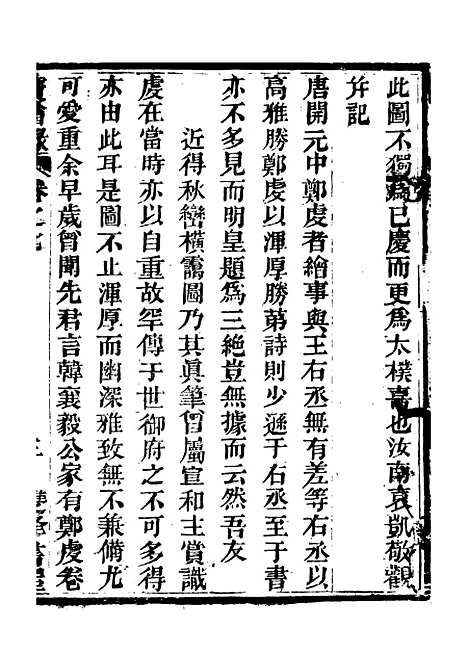 此圖不獨爲已慶而更爲太樸喜也汝南袁凱敬觀
幷記
唐開元中鄭虔者繪事與王右丞無有差等右丞以
高雅勝鄭虔以渾厚勝第詩則少遜于右丞至于書
亦不多見而明皇題爲三絶豈無據而云然吾友
近得秋巒橫靄圖乃其眞筆曾屬宣和主賞識
虔在當時亦以自重故罕傳于世御府之不可多得
亦由此耳是圖不止渾厚而幽深雅致無不兼備尤
可愛重余早歲曾聞先君言韓襄毅公家有鄭虔卷
卷之七